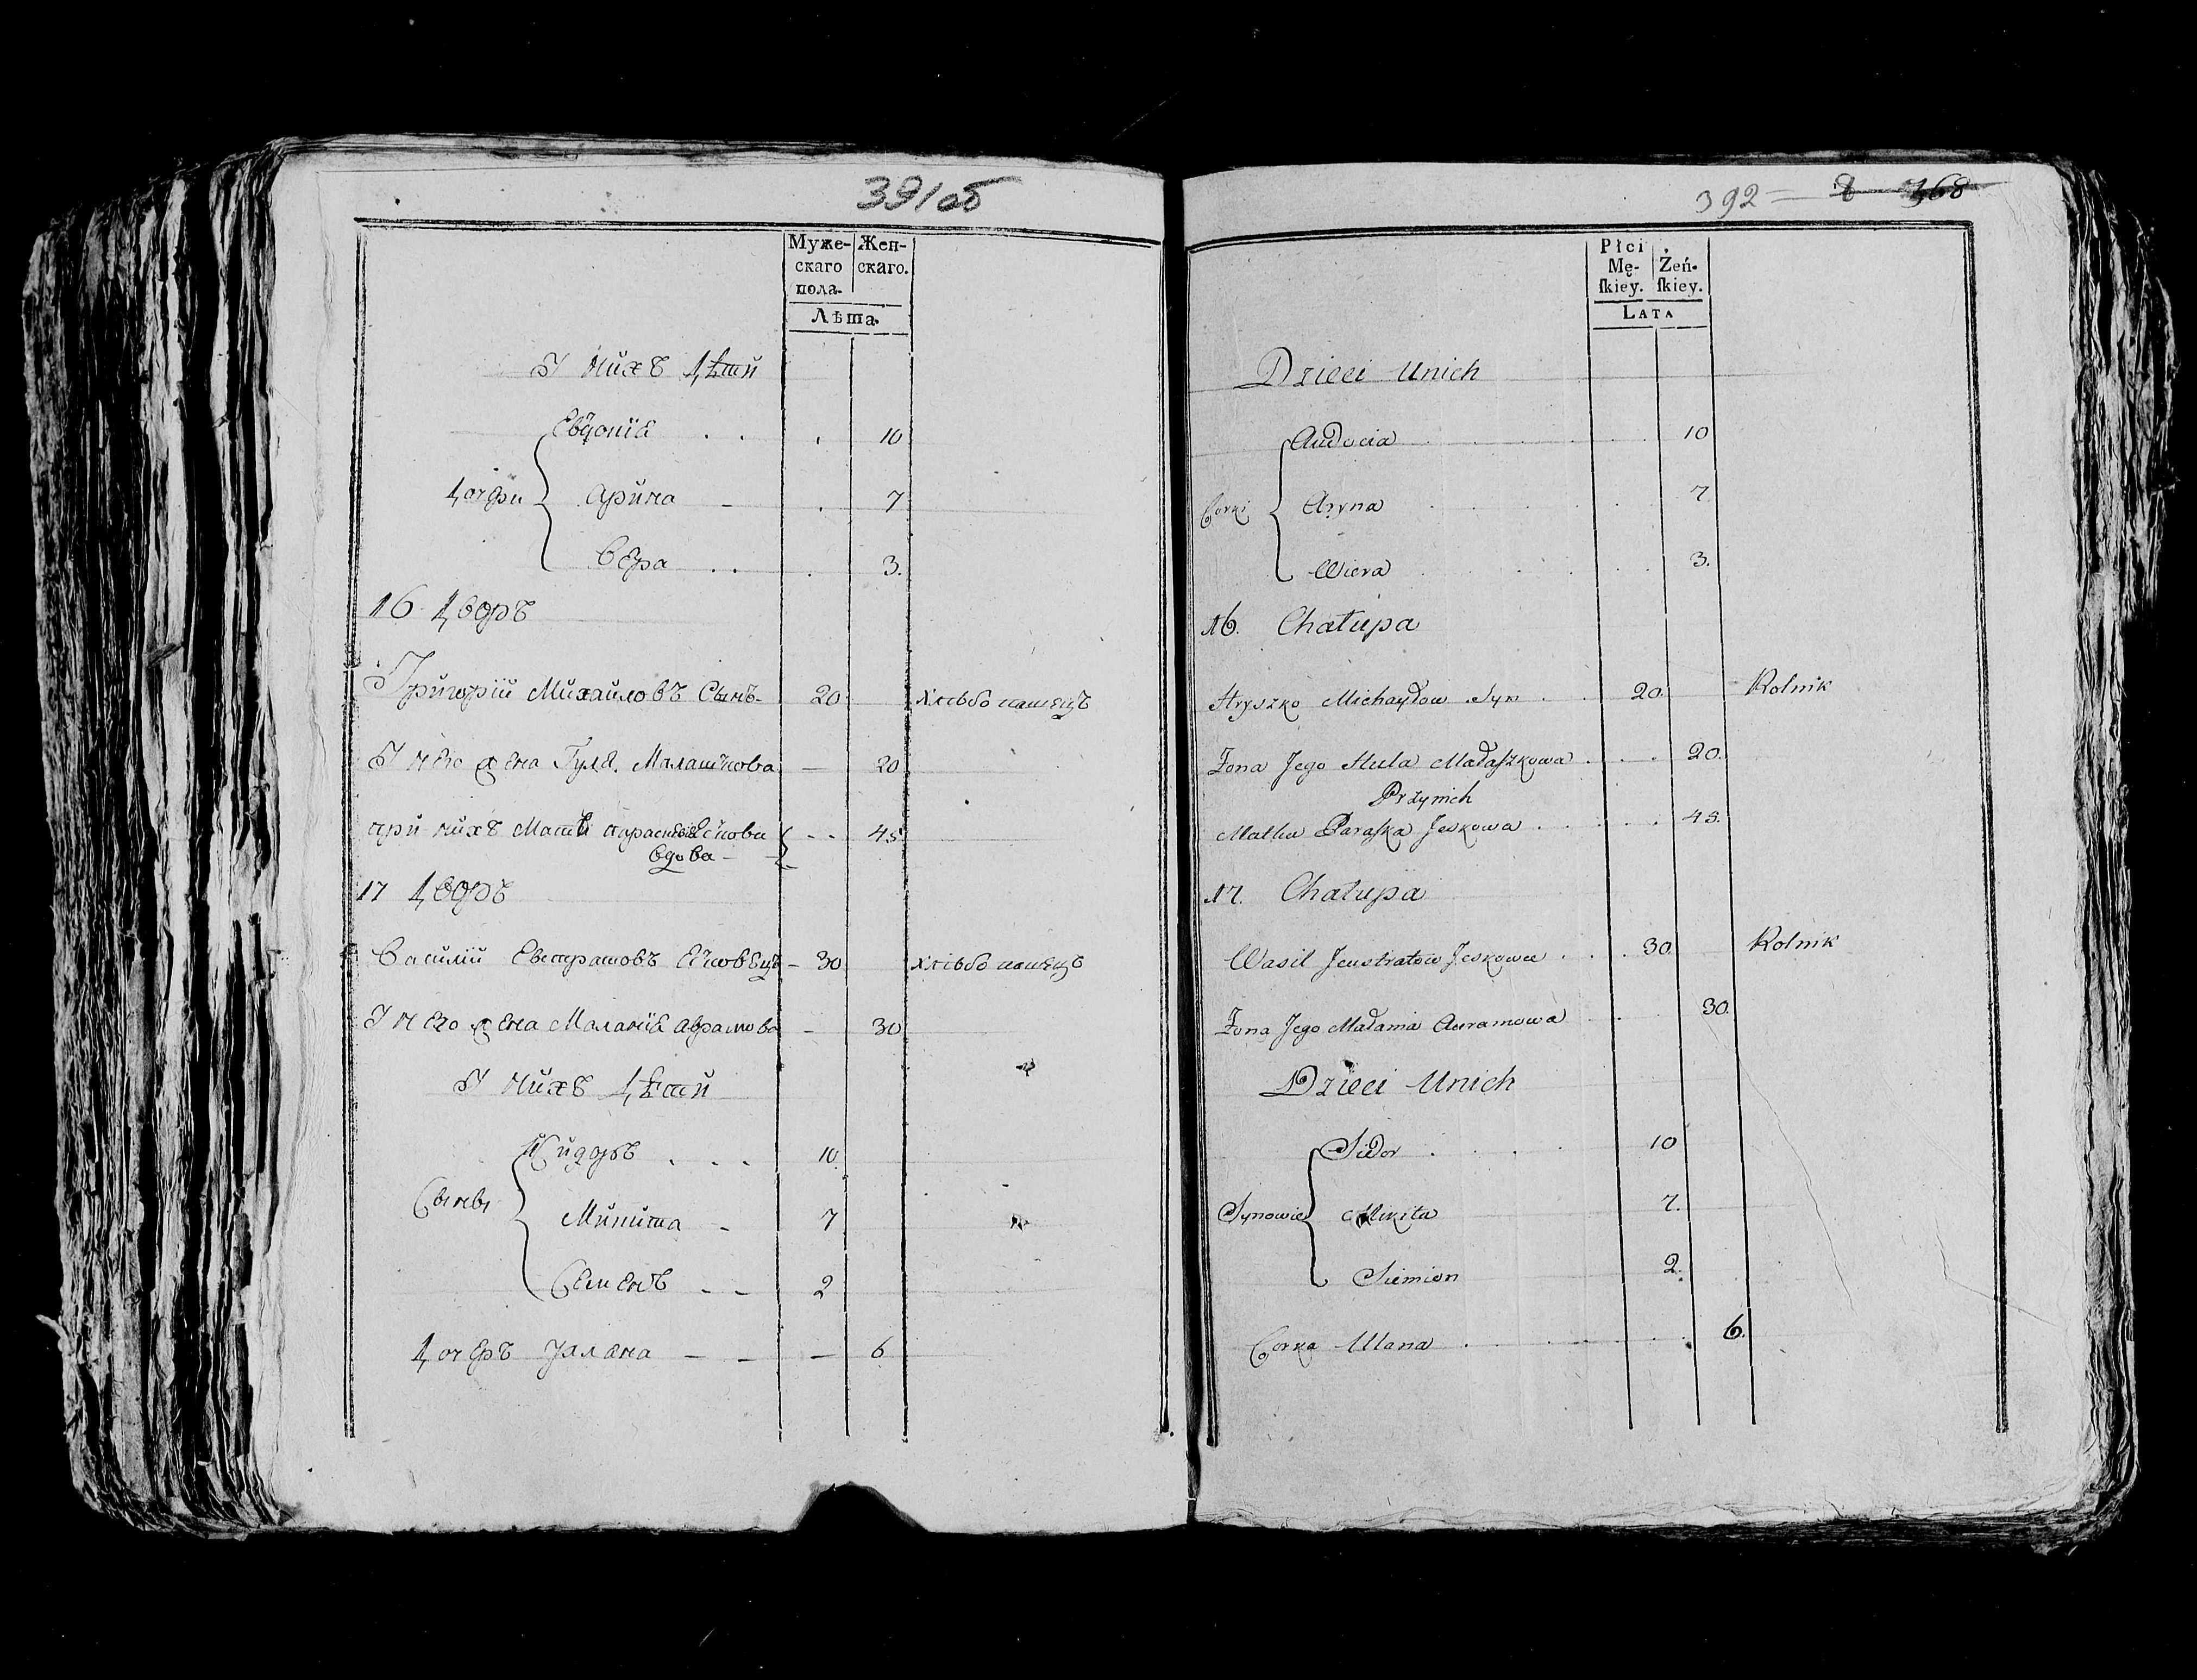 391об
Муже-
скаго
пола.
Жен-
скаго.
Лѣта.
У нихъ дѣти
Евдокія . . . 10
Дочери
Арина - . 7
Вера . . . 3.
16 дворъ
Григорій Михайловъ Сынъ - 20 хлѣбопашецъ
У него жена Гуля Малашкова - 20
при нихъ мать Ескова - - 45
вдова -
17 дворъ
Василій Евстратовъ Есковецъ - 30 хлѣбопашецъ
У него жена Маланія Аврамова - 30
У нихъ дѣти
Сидоръ . . . 10.
Сыны
Микита - 7
Семенъ - - 2
Дочеръ Уляна - - - 6
392 = 8 368
Płci
Mę-
ſkiey.
Żeń-
ſkiey.
LATA
Dzieci Unich
Audocia 10
Corki
Aryna 7
Wiera 3.
16. Chałupa
Hryszko Michayłow Syn 20. Rolnik
Zona Jego Hula Małaſzkowa 20.
Przynich
Matka Paraſka Jeskowa 45.
17. Chałupa
Wasil Jeustratow Jeskowec 30. Rolnik
Zona Jego Małania Auramowa 30.
Dzieci Unich
Sidor 10
Synowie
Mikita 7.
Siemion 2.
Corka Ulana 6.